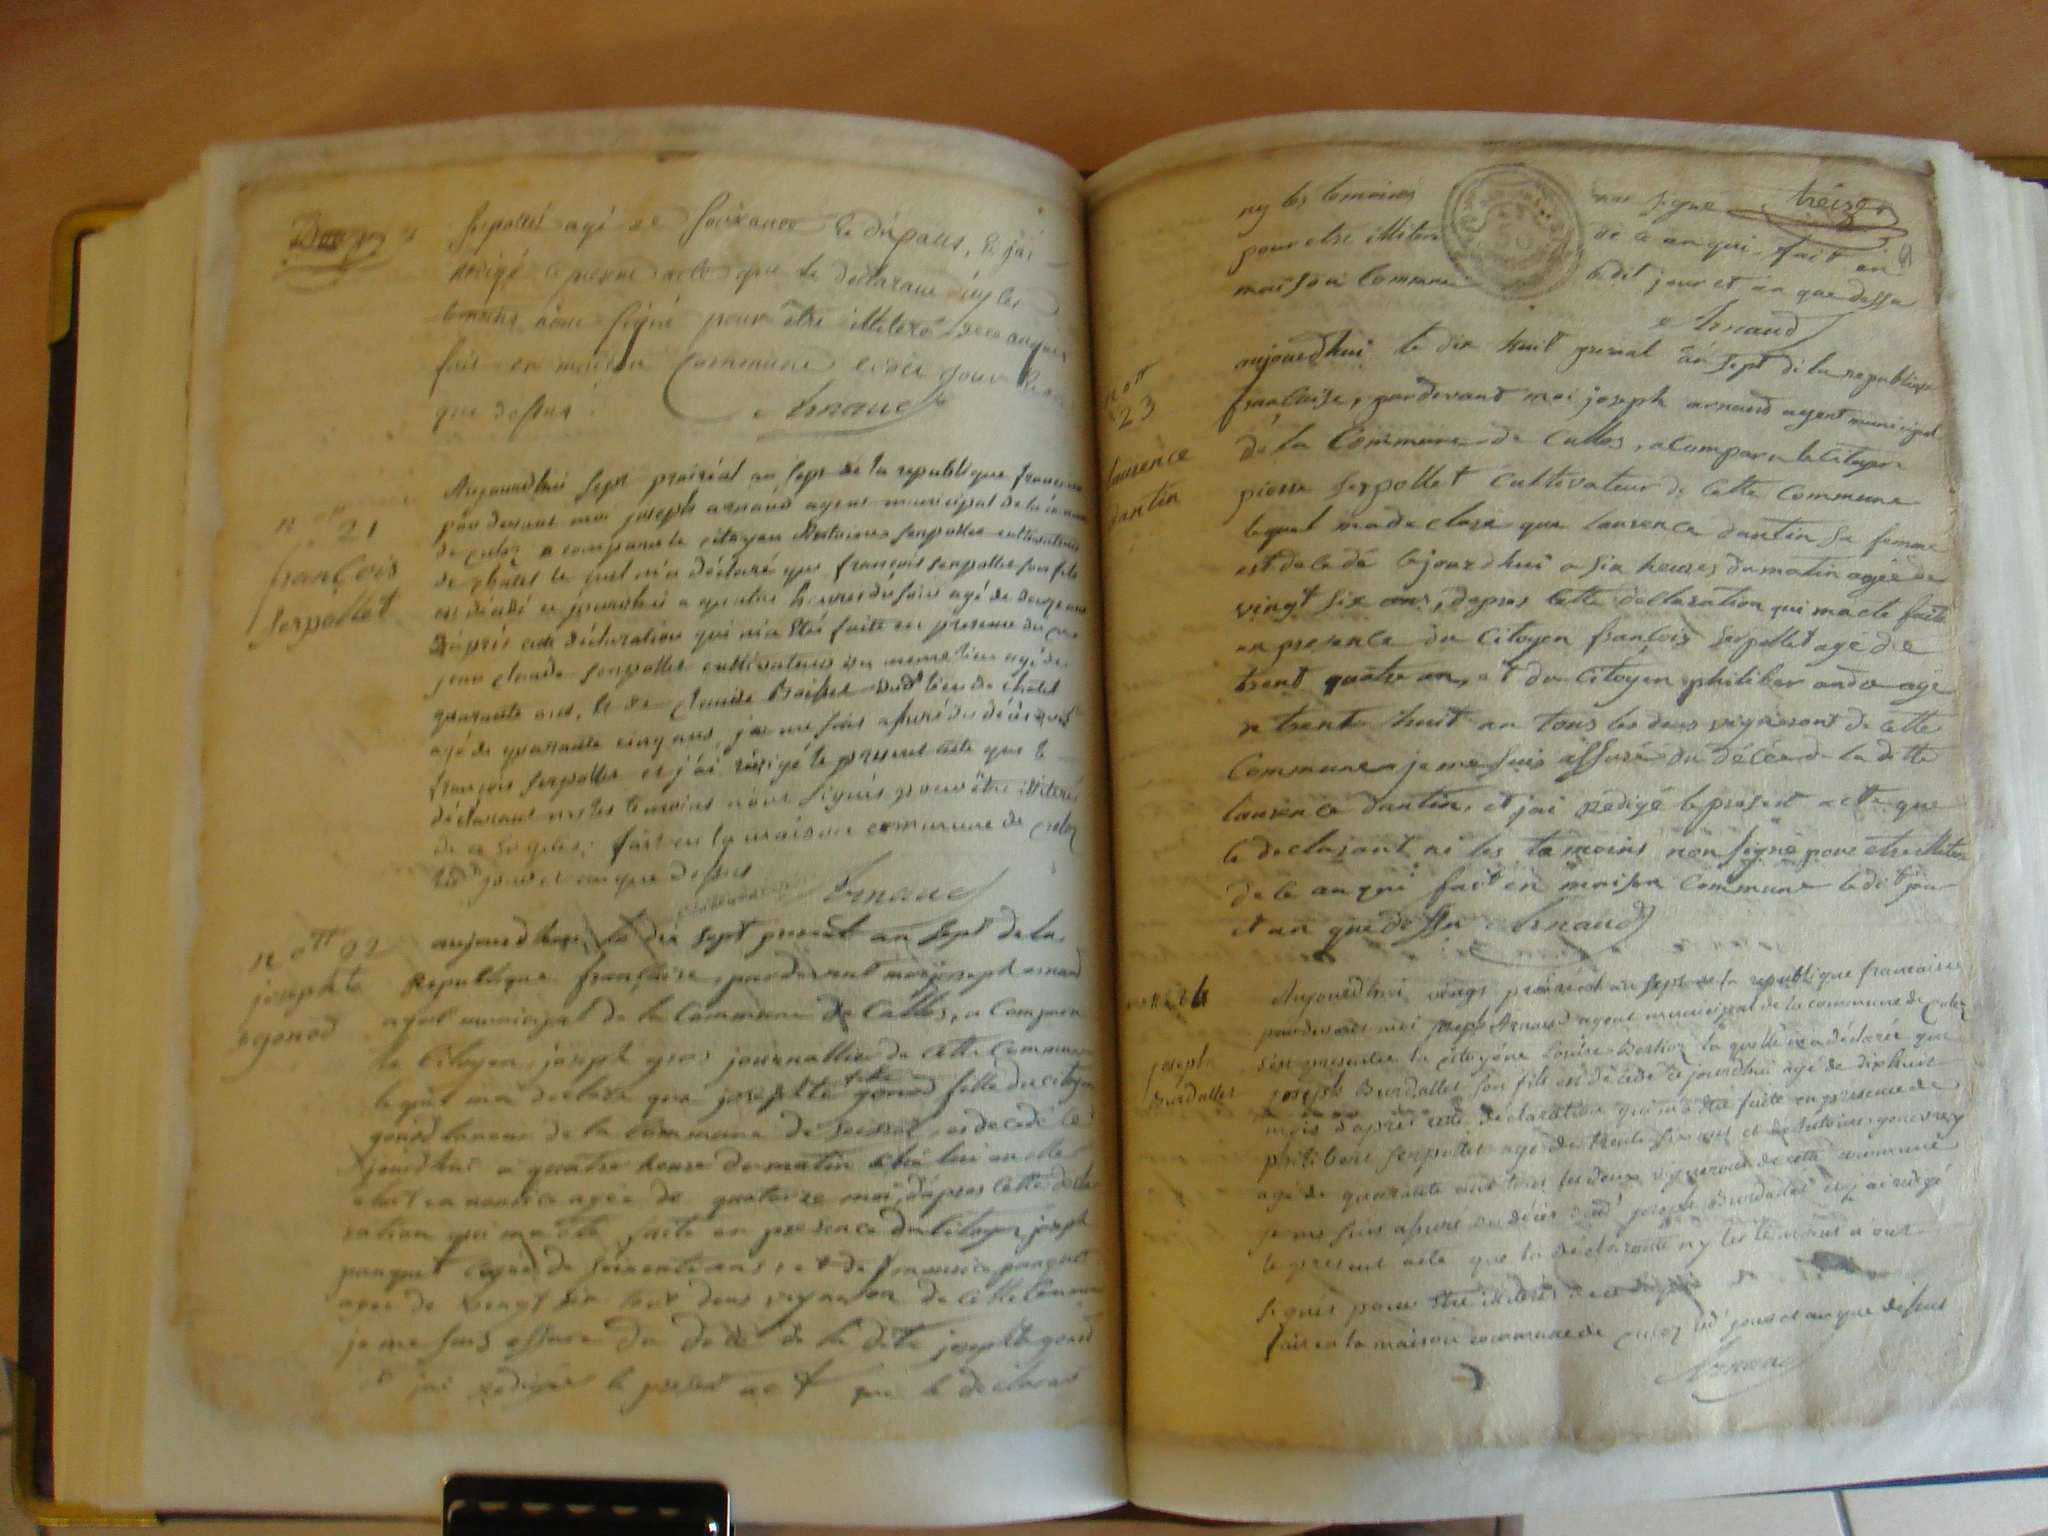 Douze
Serpollet agé de soixante et dix ans, et j'ai
redigé le present acte que le declarant ny les
temoins n'ont signé pour être illiteré de ce enquis
fait en maison Commune ledit jour et an
que dessus.
Arnaud
n° 21
françois
serpollet
Aujourdhui sept prairial an sept de la republique francaise
par devant moi joseph arnaud agent municipal de la commune
de culoz a comparu le citoyen Antoine serpollet cultivateur
de chatel le quel m'a déclaré que françois serpollet son fils
est decedé ce jourdhui a quatre heures du soir agé de
D'après cette déclaration qui m'a étée faite en presence de
jean claude serpollet cultivateur du meme lieu agé de
quarante ans, et de claude du dt lieu de chatel
agé de quarante cinq ans, je me suis assuré du décès dudt
françois serpollet et j'ai rédigé le present acte que le
déclarant ny les temoins n'ont signés pour être illiterés
de ce enquis; fait en la maison commune de culoz
led jour et an que dessus
Arnaud
n ott 22
josephte
gonod
aujourdhui le dix sept prerial an sept de la
Republique française, pardevant moi joseph arnaud
agent municipal de la Commune de Culloz, a comparu
le Citoyen joseph gros journallier de cette Commune
lequel ma declaré que josephte gonod fille du citoyen
gonod de la commune de seissel, est decedé ce
jourdhui a quatre heure du matin chez lui ou elle
etoit en nourice agée de quatorze moi, d'apres cette decla
ration qui ma été faite en presence du Citoyen joseph
panquet agée de soixante ans, et de panquet
agée de vengt six tout deux vigneron de cette Commune
je me suis assuré du décé de la dite josephte gonod
et jai redigée le present act que le declarant
treize
ny les temoines non signe
pour etre illitere de ce enqui, fait en
maison Commune le dit jour et an que dessu
Arnaud
n ott
23
laurence
dantin
aujourdhui le dix huit prerial an sept de la republique
francaise, pardevant moi joseph arnaud agent municipal
de la Commune de Culloz, a Comparu le Citoyen
pierre serpollet Cultivateur de Cette Commune
lequel ma declaré que laurence dantin sa femme
est decedé cejourdhui a six heures du matin agée de
vingt six an, d'apres Cette declaration qui ma ete faite
en presence du Citoyen françois serpollet agé de
trent quatre an, et du Citoyen philiber andre agé
de trent huit an tous les deux vigneront de cette
Commune je me suis assuré du décée de la ditte
laurence dantin, et jai rédigé le present acte que
le declarant ni les temoins non signé pour etre illitere
de ce enqui fait en maison Commune le dit jour
et an que dessu Arnaud
24
joseph
Burdallet
Aujourdhui vingt prairial an sept de la republique francaise
pardevant moi joseph Arnaud agent municipal de la commune de Culoz
s'est presentée la citoyene Louise Berthier la quelle m'a déclarée que
joseph Burdallet son fils est décédé ce jourdhui agé de dixhuit
mois d'après cette déclaration qui m'a été faite en presence de
philibert serpollet agé de trente six ans et de Antoine
agé de quarante ans tous les deux vignerons de cette commune
je me suis assuré du décès dudt joseph Burdallet et j'ai redigé
le present acte que la déclarante ny les temoins n'ont
signés pour être illiterés de ce enquis
fait en la maison commune de culoz led jour et an que dessus
Arnaud